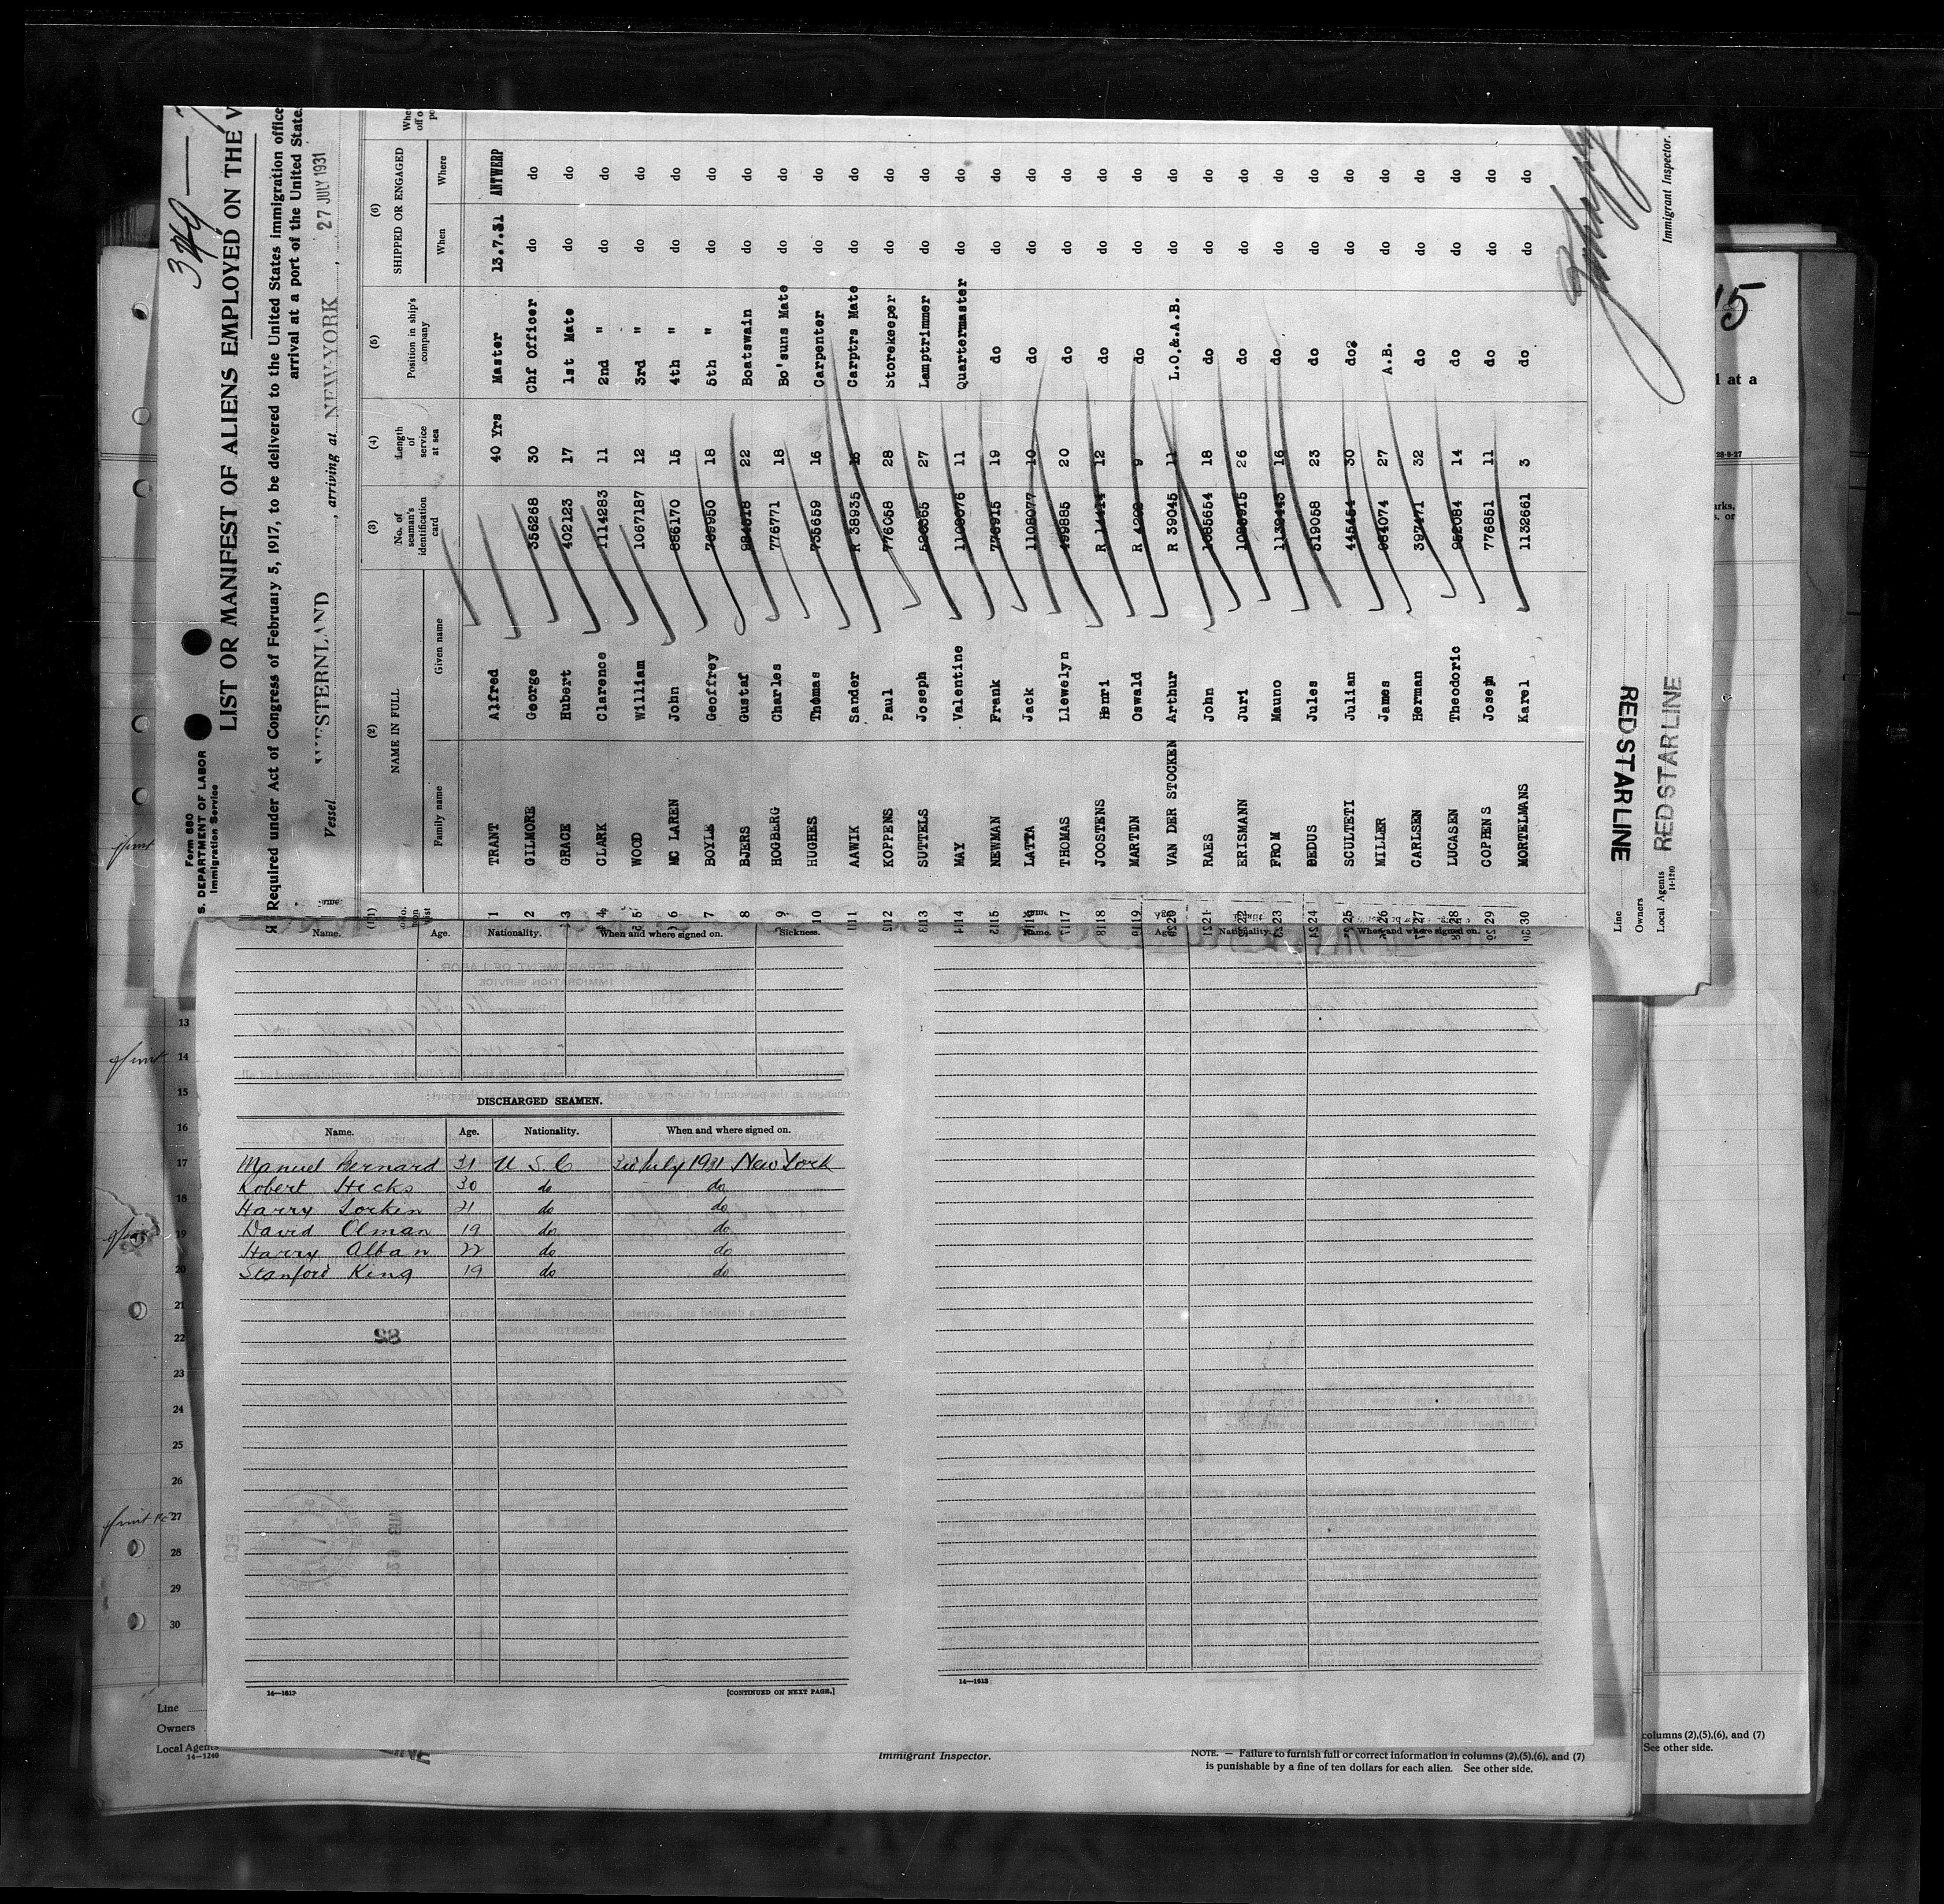 349
Form 680
S. DEPARTMENT OF LABOR
Immigration Service
LIST OR MANIFEST OF ALIENS EMPLOYED ON THE V
Required under Act of Congress of February 5, 1917, to be delivered to the United States immigration office
arrival at a port of the United State
Vessel WESTERNLAND, arriving at NEW-YORK, 27 JULY 1931
(1) (2) (3) (4) (5) (6)
NAME IN FULL No. of seaman's identification card Length of service at sea Position in ship's company SHIPPED OR ENGAGED
Family name Given name When Where
1 TRANT Alfred 40 Yrs Master 13.7.31 ANTWERP
2 GILMORE George 356268 30 Chf Officer do do
3 GRACE Hubert 402123 17 1st Mate do do
4 CLARK Clarence 1114283 11 2nd " do do
5 WOOD William 1067187 12 3rd " do do
6 MC LAREN John 15 4th " do do
7 BOYLE Geoffrey 18 5th " do do
8 BJERS Gustaf 22 Boatswain do do
9 HOGBERG Charles 776771 18 Bo'suns Mate do do
10 HUGHES Thomas 735659 16 Carpenter do do
11 AAWIK Sander R 38935 Carptrs Mate do do
12 KOPPENS Paul 776058 28 Storekeeper do do
13 SUTTELS Joseph 27 Lamptrimmer do do
14 MAY Valentine 11 Quartermaster do do
15 NEWMAN Frank 776915 19 do do do
16 LATTA Jack 1108077 10 do do do
17 THOMAS Llewelyn 499885 20 do do do
18 JOOSTENS Henri R 14414 12 do do do
19 MARTIN Oswald 9 do do do
20 VAN DER STOCKEN Arthur R 39045 11 L.O.&.A.B. do do
21 RAES John 1085654 18 do do do
22 ERISMANN Juri 26 do do do
23 FROM Mauno 16 do do do
24 BEDUS Jules 319058 23 do do do
25 SCULTETI Julian 445454 30 do do do
26 MILLER James 27 A.B. do do
27 CARLSEN Herman 397471 32 do do do
28 LUCASEN Theodoric 14 do do do
29 COPPENS Joseph 776851 11 do do do
30 MORTELMANS Karel 1132661 3 do do do
Immigrant Inspector.
Line RED STAR LINE
Owners
Local Agents RED STAR LINE
14-1240
15
l at a
28-9-27
Name. Age. Nationality. When and where signed on. Sickness.
Name. Age. Nationality. When and where signed on.
DISCHARGED SEAMEN.
Name. Age. Nationality. When and where signed on.
Manuel Bernard 31 U S C 3rd July 1931 New York
Robert Hicks 30 do do
Harry Sorkin 21 do do
David Olman 19 do do
Harry Alban 22 do do
Stanford King 19 do do
13
14
15
16
17
18
19
20
21
22
23
24
25
26
27
28
29
30
14—1613
[CONTINUED ON NEXT PAGE.]
14—1613
Line
Owners
Local Agents
14—1240
Immigrant Inspector.
NOTE. — Failure to furnish full or correct information in columns (2),(5),(6), and (7)
is punishable by a fine of ten dollars for each alien. See other side.
columns (2),(5),(6), and (7)
See other side.